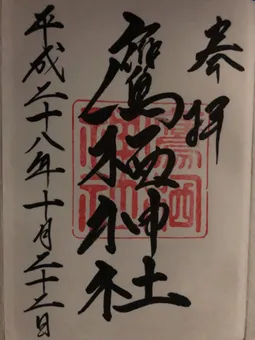 奉拝
鷹栖神社
平成二十八年十月二十二日